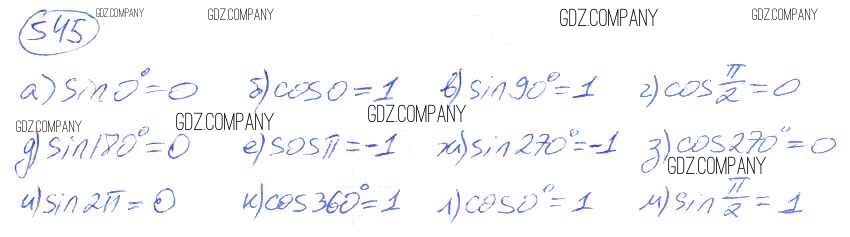 545 GDZ.COMPANY GDZ.COMPANY GDZ.COMPANY GDZ.COMPANY
а) sin 0° = 0 б) cos 0 = 1 в) sin 90° = 1 г) cos π/2 = 0
GDZ.COMPANY GDZ.COMPANY GDZ.COMPANY
д) sin 180° = 0 е) sos π = -1 ж) sin 270° = -1 з) cos 270° = 0
GDZ.COMPANY
и) sin 2π = 0 к) cos 360° = 1 л) cos 0° = 1 м) sin π/2 = 1